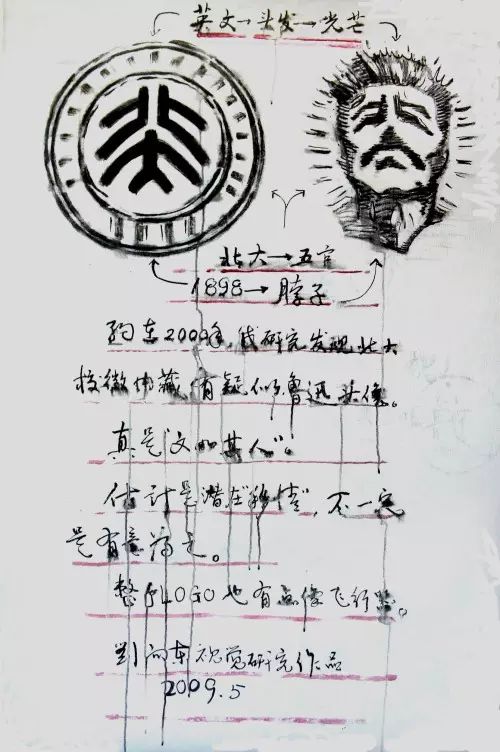 英文→头发→光芒
北大→五官
1898→脖子
约在2000年,我研究发现北大
校徽 藏,有疑似鲁迅头像。
真是"文如其人"。
估计是潜在"移情",不一定
是有意为之。
整个LOGO也有点像飞行器。
劉向东视觉研究作品
2009.5